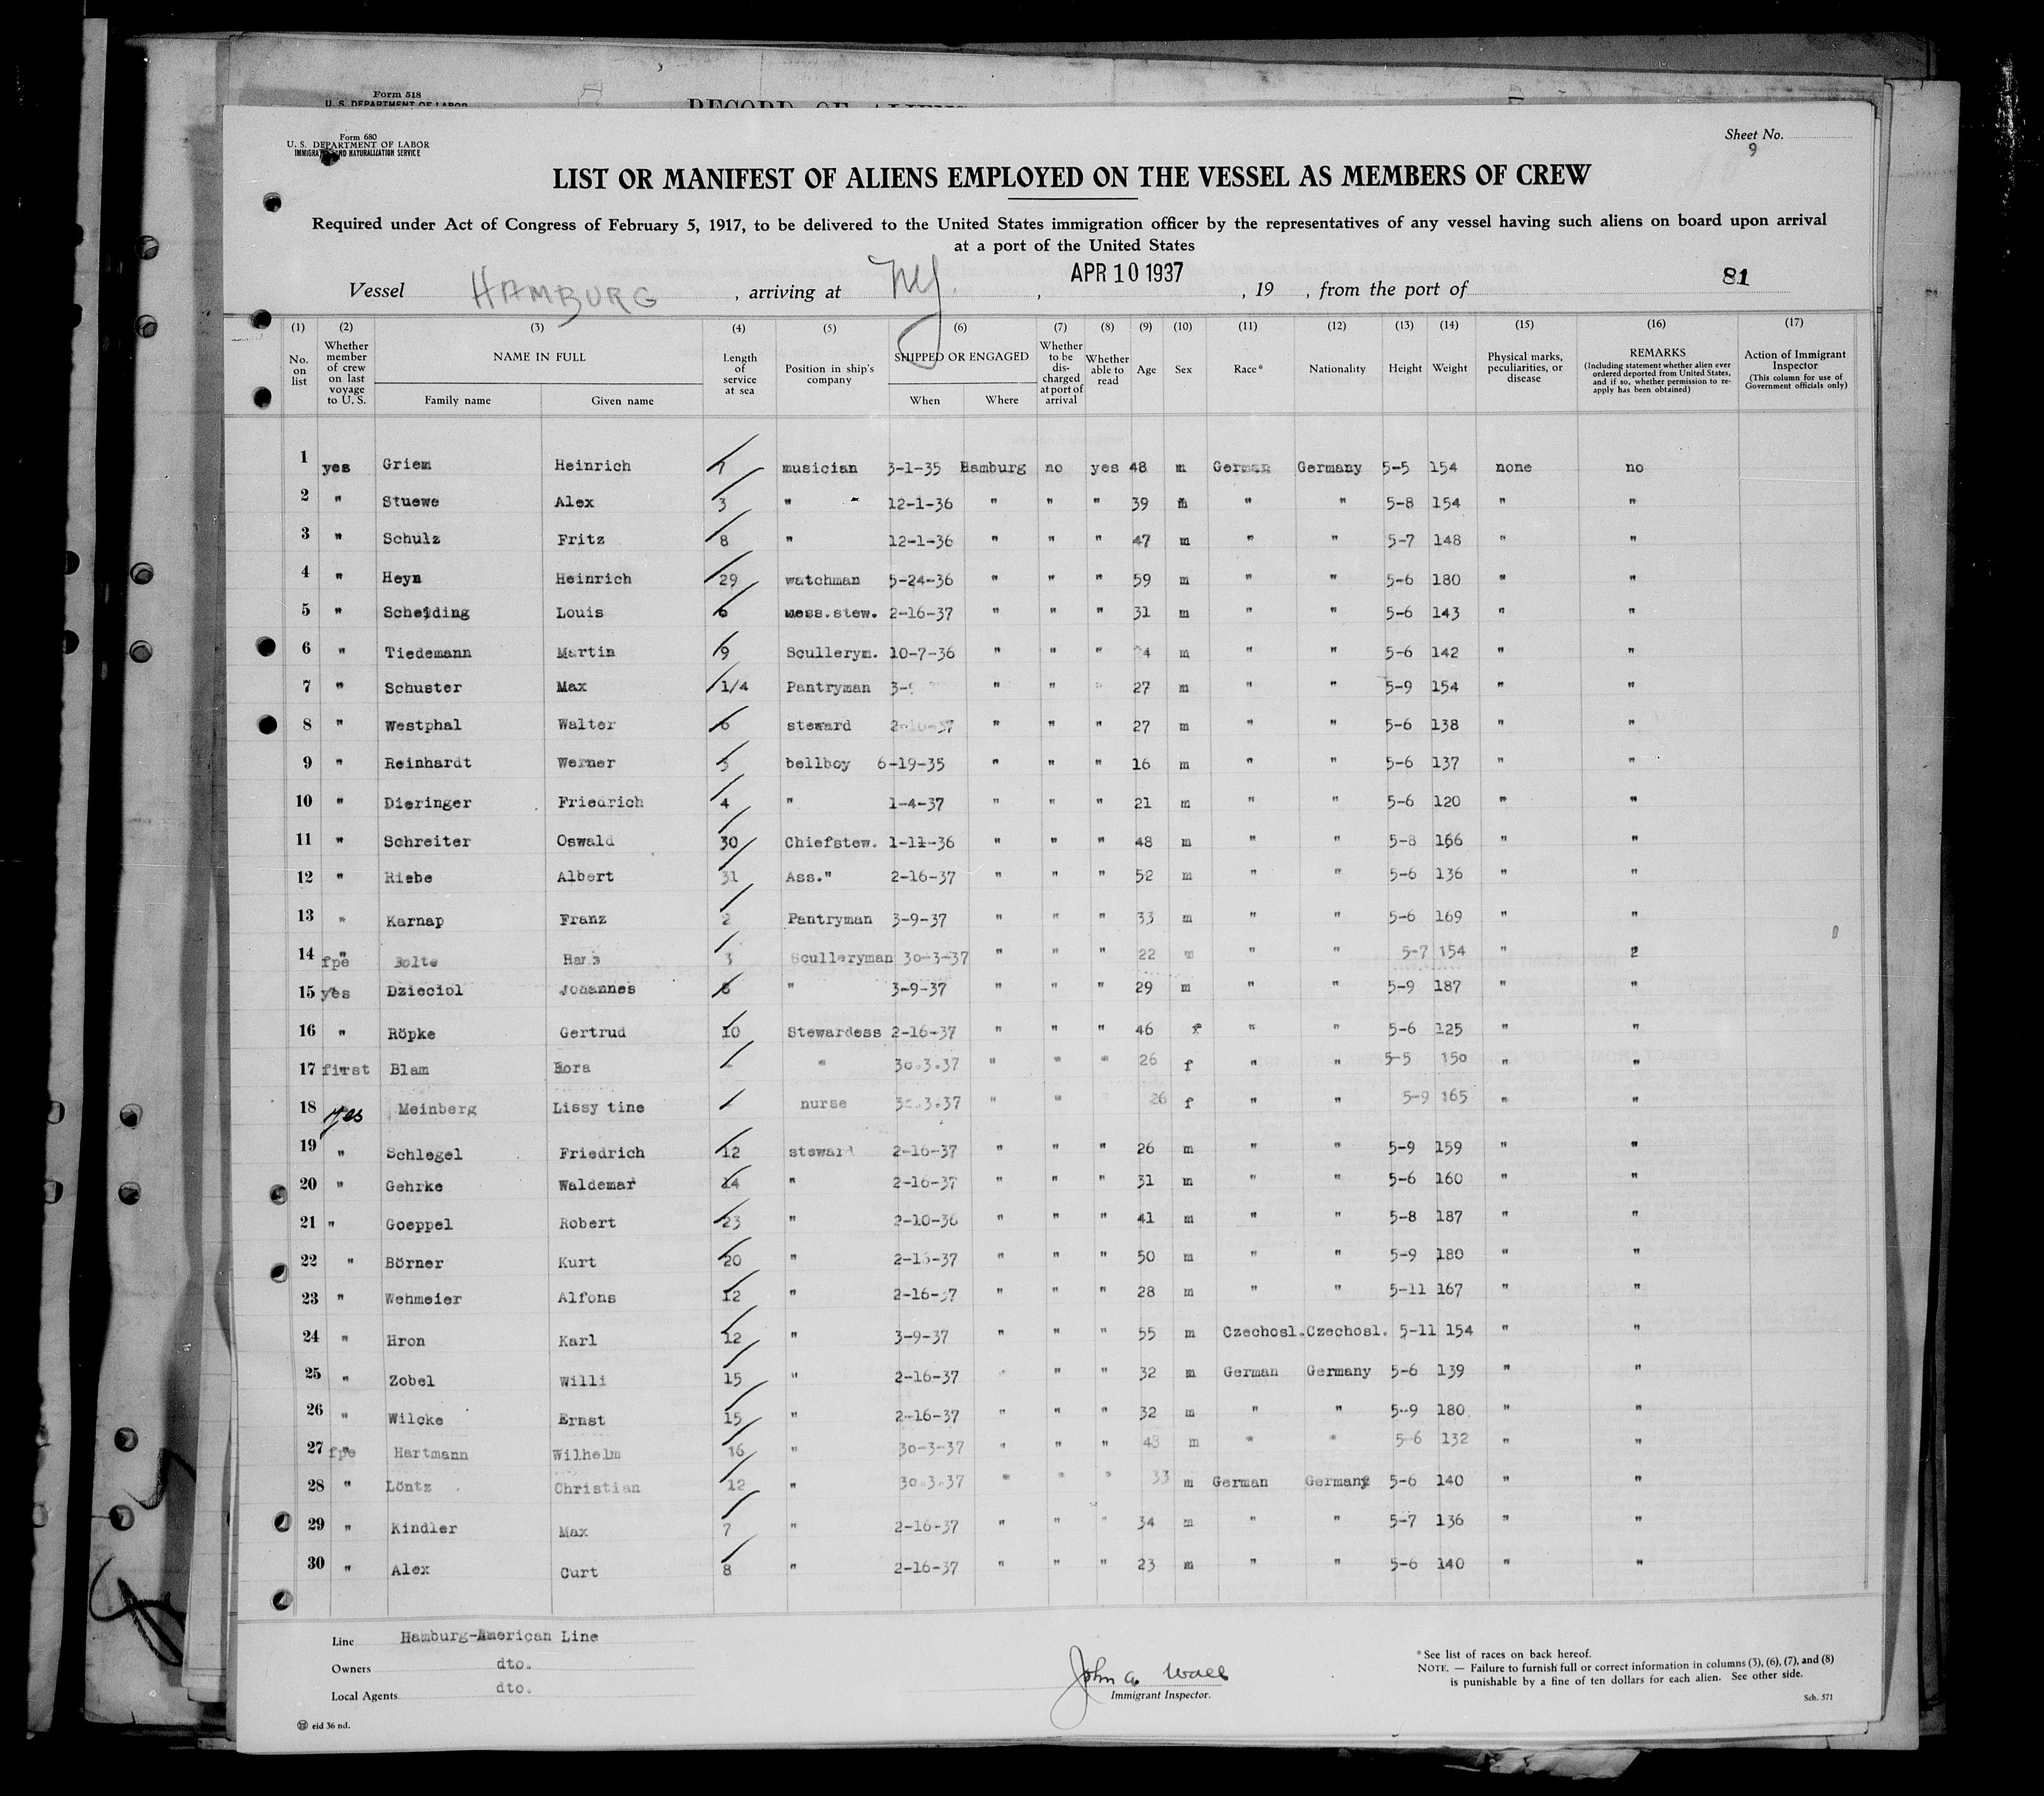 Form 518
U. S. DEPARTMENT OF LABOR
RECORD OF ALIENS
Form 680
U. S. DEPARTMENT OF LABOR
IMMIGRATION AND NATURALIZATION SERVICE
Sheet No.
9
LIST OR MANIFEST OF ALIENS EMPLOYED ON THE VESSEL AS MEMBERS OF CREW
Required under Act of Congress of February 5, 1917, to be delivered to the United States immigration officer by the representatives of any vessel having such aliens on board upon arrival
at a port of the United States
Vessel HAMBURG , arriving at NY. , APR 10 1937 , 19 , from the port of 81
(1) (2) (3) (4) (5) (6) (7) (8) (9) (10) (11) (12) (13) (14) (15) (16) (17)
No. on list
Whether member of crew on last voyage to U. S.
NAME IN FULL
Family name
Given name
Length of service at sea
Position in ship's company
SHIPPED OR ENGAGED
When
Where
Whether to be discharged at port of arrival
Whether able to read
Age
Sex
Race*
Nationality
Height
Weight
Physical marks, peculiarities, or disease
REMARKS
(Including statement whether alien ever ordered deported from United States, and if so, whether permission to re-apply has been obtained)
Action of Immigrant Inspector
(This column for use of Government officials only)
1 yes Griem Heinrich 7 musician 3-1-35 Hamburg no yes 48 m German Germany 5-5 154 none no
2 " Stuewe Alex 3 " 12-1-36 " " " 39 m " " 5-8 154 " "
3 " Schulz Fritz 8 " 12-1-36 " " " 47 m " " 5-7 148 " "
4 " Heyn Heinrich 29 watchman 5-24-36 " " " 59 m " " 5-6 180 " "
5 " Scheiding Louis 6 mess.stew. 2-16-37 " " " 31 m " " 5-6 143 " "
6 " Tiedemann Martin 9 Scullerym. 10-7-36 " " " m " " 5-6 142 " "
7 " Schuster Max 1/4 Pantryman " " " 27 m " " 5-9 154 " "
8 " Westphal Walter 6 steward " " " 27 m " " 5-6 138 " "
9 " Reinhardt Werner 3 bellboy 6-19-35 " " " 16 m " " 5-6 137 " "
10 " Dieringer Friedrich 4 " 1-4-37 " " " 21 m " " 5-6 120 " "
11 " Schreiter Oswald 30 Chiefstew. 1-11-36 " " " 48 m " " 5-8 166 " "
12 " Riebe Albert 31 Ass." 2-16-37 " " " 52 m " " 5-6 136 " "
13 " Karnap Franz 2 Pantryman 3-9-37 " " " 33 m " " 5-6 169 " "
14 fpe Bolte Hans 3 Sculleryman 30-3-37 " " " 22 m " " 5-7 154 "
15 yes Dzieciol Johannes 8 " 3-9-37 " " " 29 m " " 5-9 187 " "
16 " Röpke Gertrud 10 Stewardess 2-16-37 " " " 46 f " " 5-6 125 " "
17 first Blam " 30.3.37 " " " 26 f " " 5-5 150 " "
18 yes Meinberg Lissy tine nurse 30.3.37 " " 26 f " " 5-9 165 " "
19 " Schlegel Friedrich 12 steward 2-16-37 " " " 26 m " " 5-9 159 " "
20 " Gehrke Waldemar 14 " 2-16-37 " " " 31 m " " 5-6 160 " "
21 " Goeppel Robert 23 " 2-10-36 " " " 41 m " " 5-8 187 " "
22 " Börner Kurt 20 " " " " 50 m " " 5-9 180 " "
23 " Wehmeier Alfons 12 " 2-16-37 " " " 28 m " " 5-11 167 " "
24 " Hron Karl 12 " 3-9-37 " " " 55 m Czechosl. Czechosl. 5-11 154 " "
25 " Zobel Willi 15 " 2-16-37 " " " 32 m German Germany 5-6 139 " "
26 " Wilcke Ernst 15 " 2-16-37 " " " 32 m " " 5-9 180 " "
27 fpe Hartmann Wilhelm 16 " 30-3-37 " " " 48 m " " 5-6 132 " "
28 " Löntz Christian 12 " 30.3.37 " " " 33 m German Germany 5-6 140 " "
29 " Kindler Max 7 " 2-16-37 " " " 34 m " " 5-7 136 " "
30 " Alex Curt 8 " 2-16-37 " " " 23 m " " 5-6 140 " "
Line Hamburg-American Line
Owners dto.
Local Agents dto.
John A. Wall
Immigrant Inspector.
*See list of races on back hereof.
NOTE. — Failure to furnish full or correct information in columns (3), (6), (7), and (8)
is punishable by a fine of ten dollars for each alien. See other side.
Sch. 571
eid 36 nd.